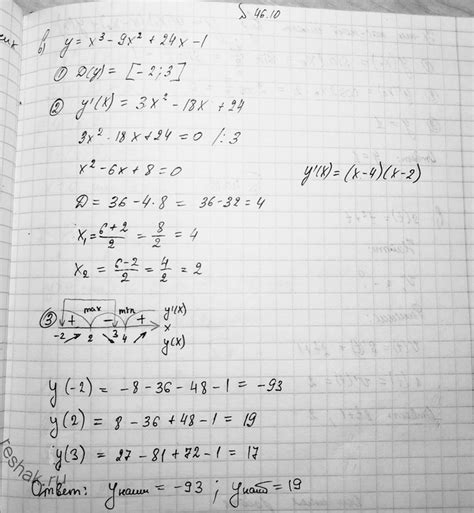 № 46.10
в) y = x³ - 9x² + 24x - 1
① D(y) = [-2; 3]
② y'(x) = 3x² - 18x + 24
3x² - 18x + 24 = 0 /:3
x² - 6x + 8 = 0
y'(x) = (x-4)(x-2)
D = 36 - 4·8 = 36 - 32 = 4
x₁ = (6+2)/2 = 8/2 = 4
x₂ = (6-2)/2 = 4/2 = 2
③ max min y'(x)
+ - + x
-2 2 3 4 y(x)
y(-2) = -8 - 36 - 48 - 1 = -93
y(2) = 8 - 36 + 48 - 1 = 19
y(3) = 27 - 81 + 72 - 1 = 17
Ответ: yнаим = -93 ; yнаиб = 19
reshak.ru